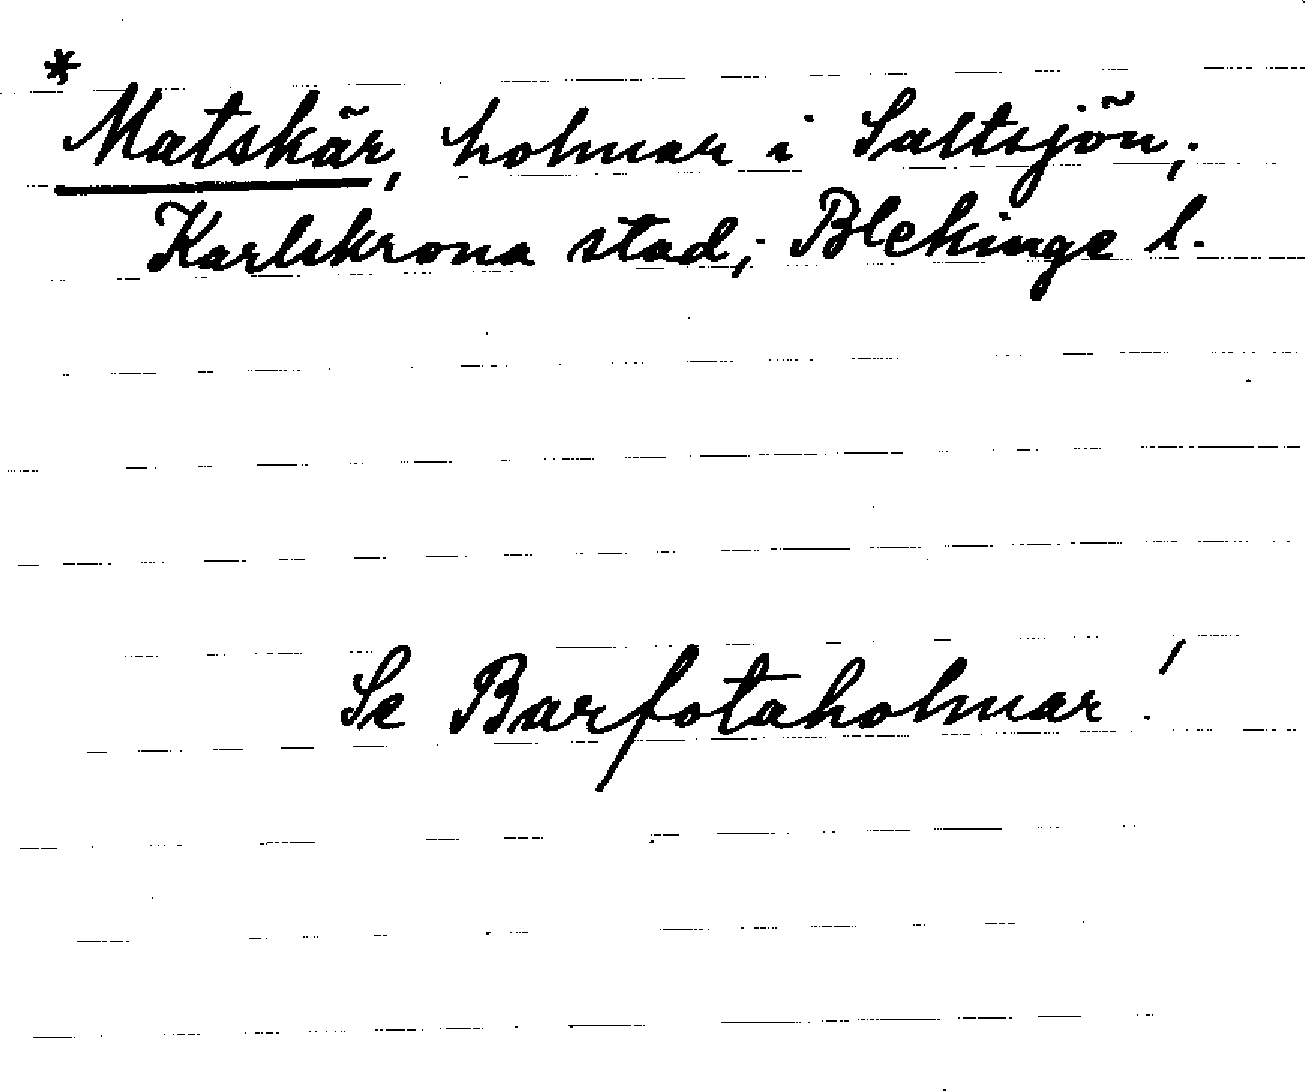 *
Matskär, holmar i Saltsjön;
Karlskrona stad; Blekinge l.
Se Barfotaholmar!